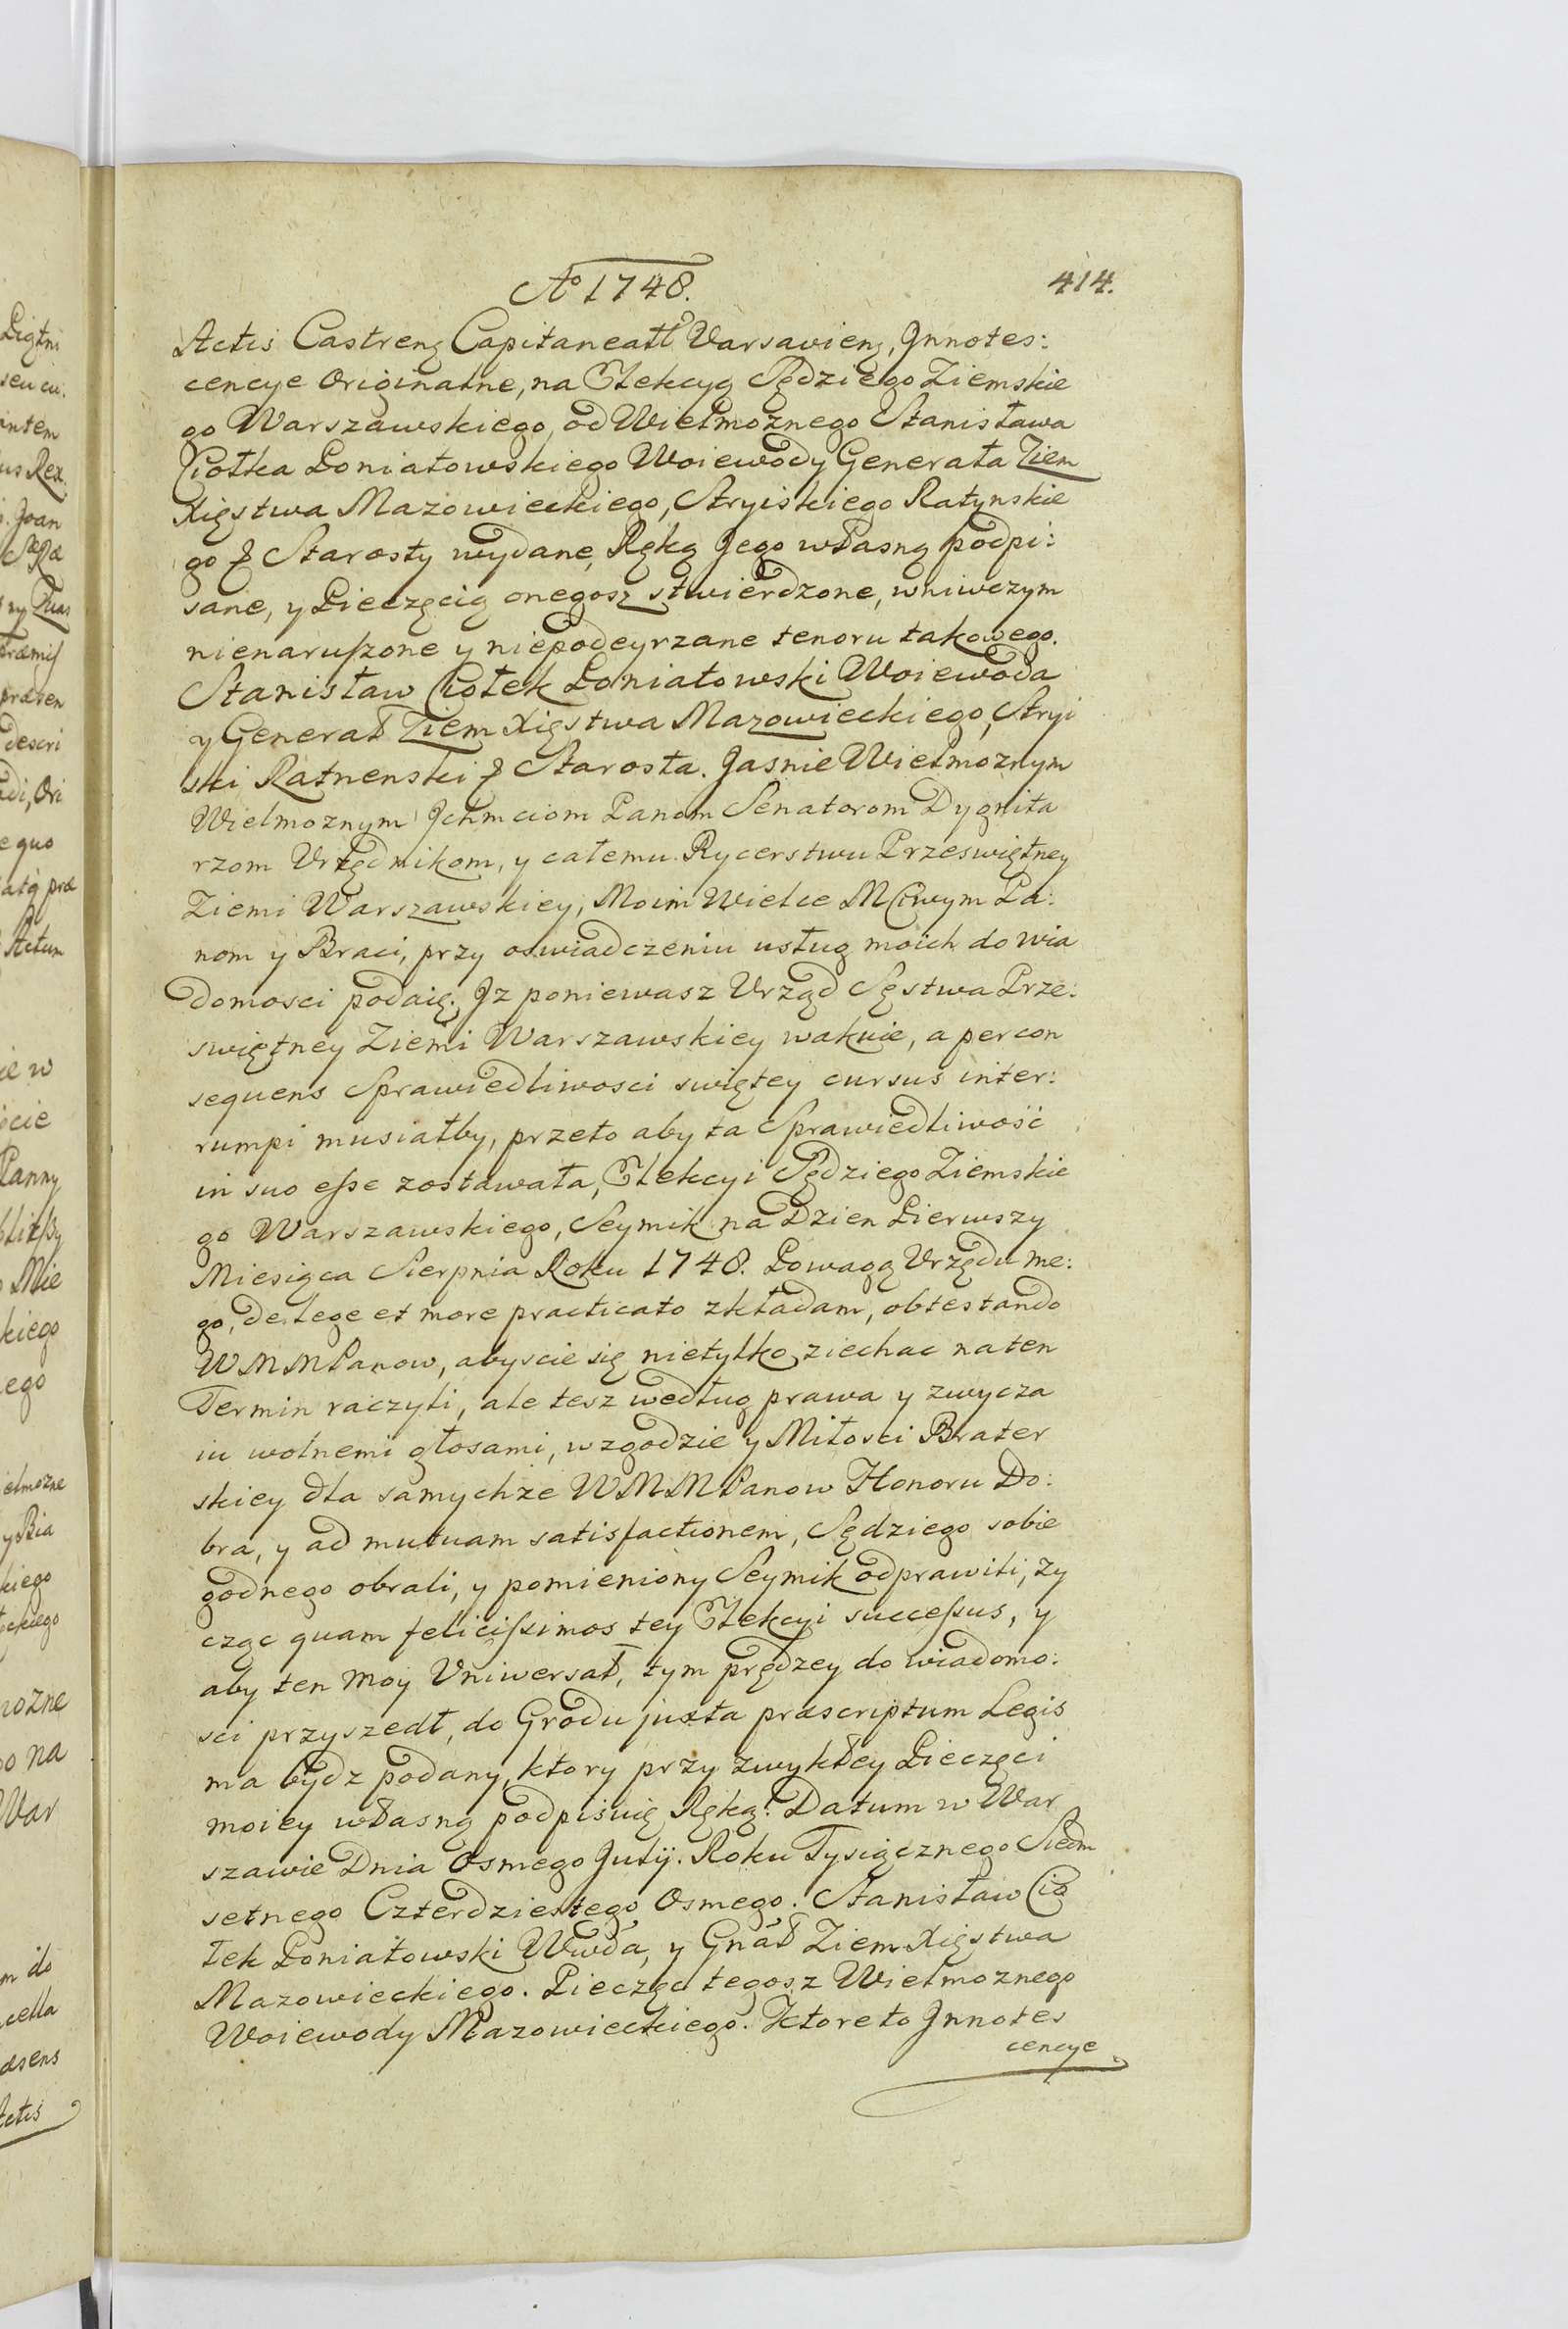 Ao 1748.
414.
Actis Castren Capitaneatt Varsavien, Jnnotes:
cencye Originalne, na Elekcyą Sędziego Ziemskie
go Warszawskiego, od Wielmoznego Stanisława
Ciołka Poniatowskiego Woiewody Generała Ziem
Xięstwa Mazowieckiego, Stryiskiego Ratynskie
go & Starosty wydane, Ręką Jego własną podpi:
sane, y Pieczęcią onegosz stwierdzone, wniwczym
nienaruszone y niepodeyrzane tenoru takowego.
Stanisław Ciołek Poniatowski Woiewoda
y Generał Ziem Xięstwa Mazowieckiego, Stryi
ski Ratnenski & Starosta. Jasnie Wielmoznym
Wielmoznym Jchmciom Panom Senatorom Dygnita
rzom Vrzędnikom, y całemu Rycerstwu Przeswiętney
Ziemi Warszawskiey, Moim Wielce MCiwym Pa:
nom y Braci, przy oswiadczeniu usług moich do wia
domosci podaię. Jz poniewasz Vrząd Sęstwa Prze:
swiętney Ziemi Warszawskiey wakuie, a percon
sequens Sprawiedliwosci swiętey cursus inter:
rumpi musiałby, przeto aby ta Sprawiedliwość
in suo esse zostawała, Elekcyi Sędziego Ziemskie
go Warszawskiego, Seymik na Dzien Pierwszy
Miesiąca Sierpnia Roku 1748. Powagą Vrzędu me:
go, de lege et more practicato zkładam, obtestando
WMMPanow, abyscie się nietylko ziechac na ten
Termin raczyli, ale tesz według prawa y zwycza
iu wolnemi głosami, w zgodzie y Miłosci Brater
skiey dla samychże WMMPanow Honoru Do:
bra, y ad mutuam satisfactionem, Sędziego sobie
godnego obrali, y pomieniony Seymik odprawili, zy
cząc quam felicissimos tey Elekcyi successus, y
aby ten moy Vniwersał, tym prędzey do wiadomo:
sci przyszedł, do Grodu juxta præscriptum Legis
ma bydz podany, ktory przy zwykłey Pieczęci
moiey własną podpisuię Ręką. Datum w War
szawie Dnia Osmego Julij. Roku Tysiącznego Siedm
setnego Czterdziestego Osmego. Stanisław Cio
łek Poniatowski Wwda, y Gnał Ziem Xięstwa
Mazowieckiego. Pieczęc tegosz Wielmoznego
Woiewody Mazowieckiego. Ktore to Jnnotes
cencye